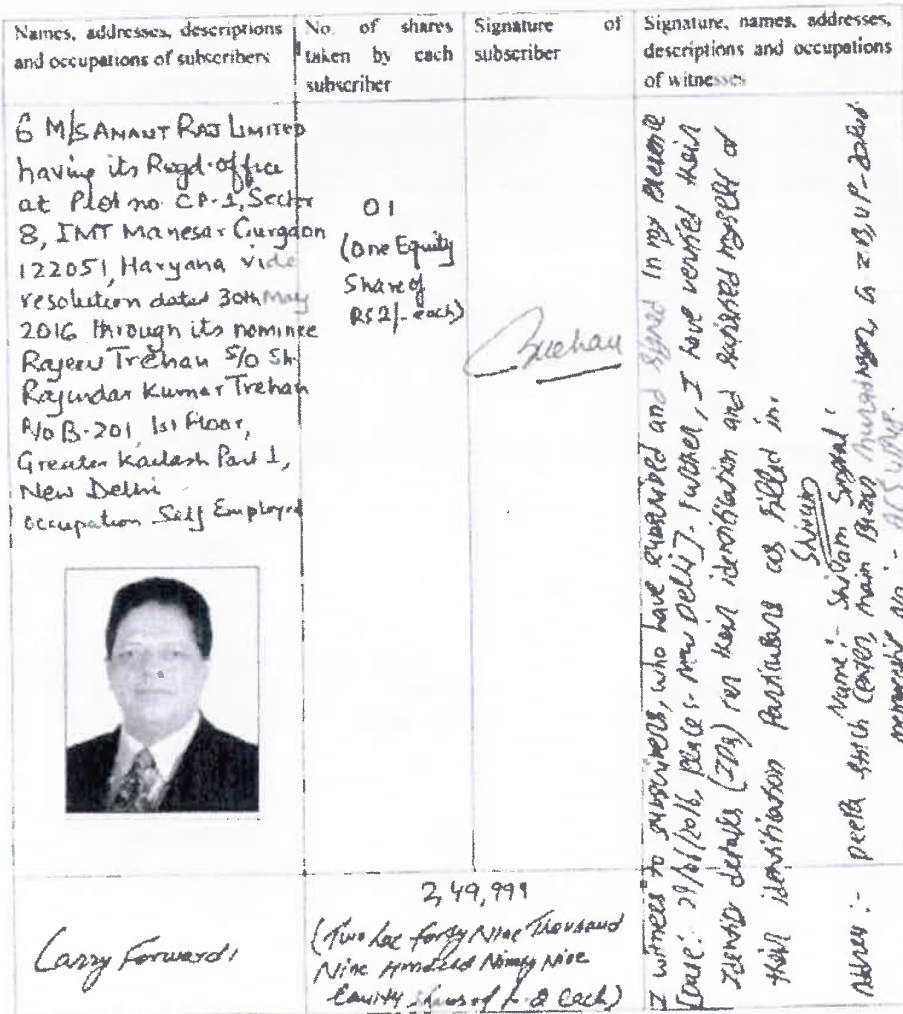 Names, addresses, descriptions
and occupations of subscribers
No. of shares
taken by each
subscriber
Signature of
subscriber
Signature, names, addresses,
descriptions and occupations
of witnesses
6 M/S ANANT RAJ LIMITED
having its Regd. office
at Plot no CP-1, Sector
8, IMT Manesar Gurgaon
122051, Haryana vide
resolution dated 30th May
2016 through its nominee
Rajeev Trehan S/o Sh.
Rajindar Kumar Trehan
R/o B-201, 1st Floor,
Greater Kailash Part 1,
New Delhi
occupation Self Employed
01
(One Equity
Share of
RS 2/- each)
I witness to subscribers, who have subscribed and signed in my presence
Place :- New Delhi]. Further, I have verified their
Identity details (IDs) for their identification and satisfied myself of
their identification particulars as filled in.
Shivam
Name :- Shivam Singhal
Address :- main Bazar
Carry Forward
2,49,999
(Two Lac forty Nine Thousand
Nine Hundred Ninety Nine
Equity each)